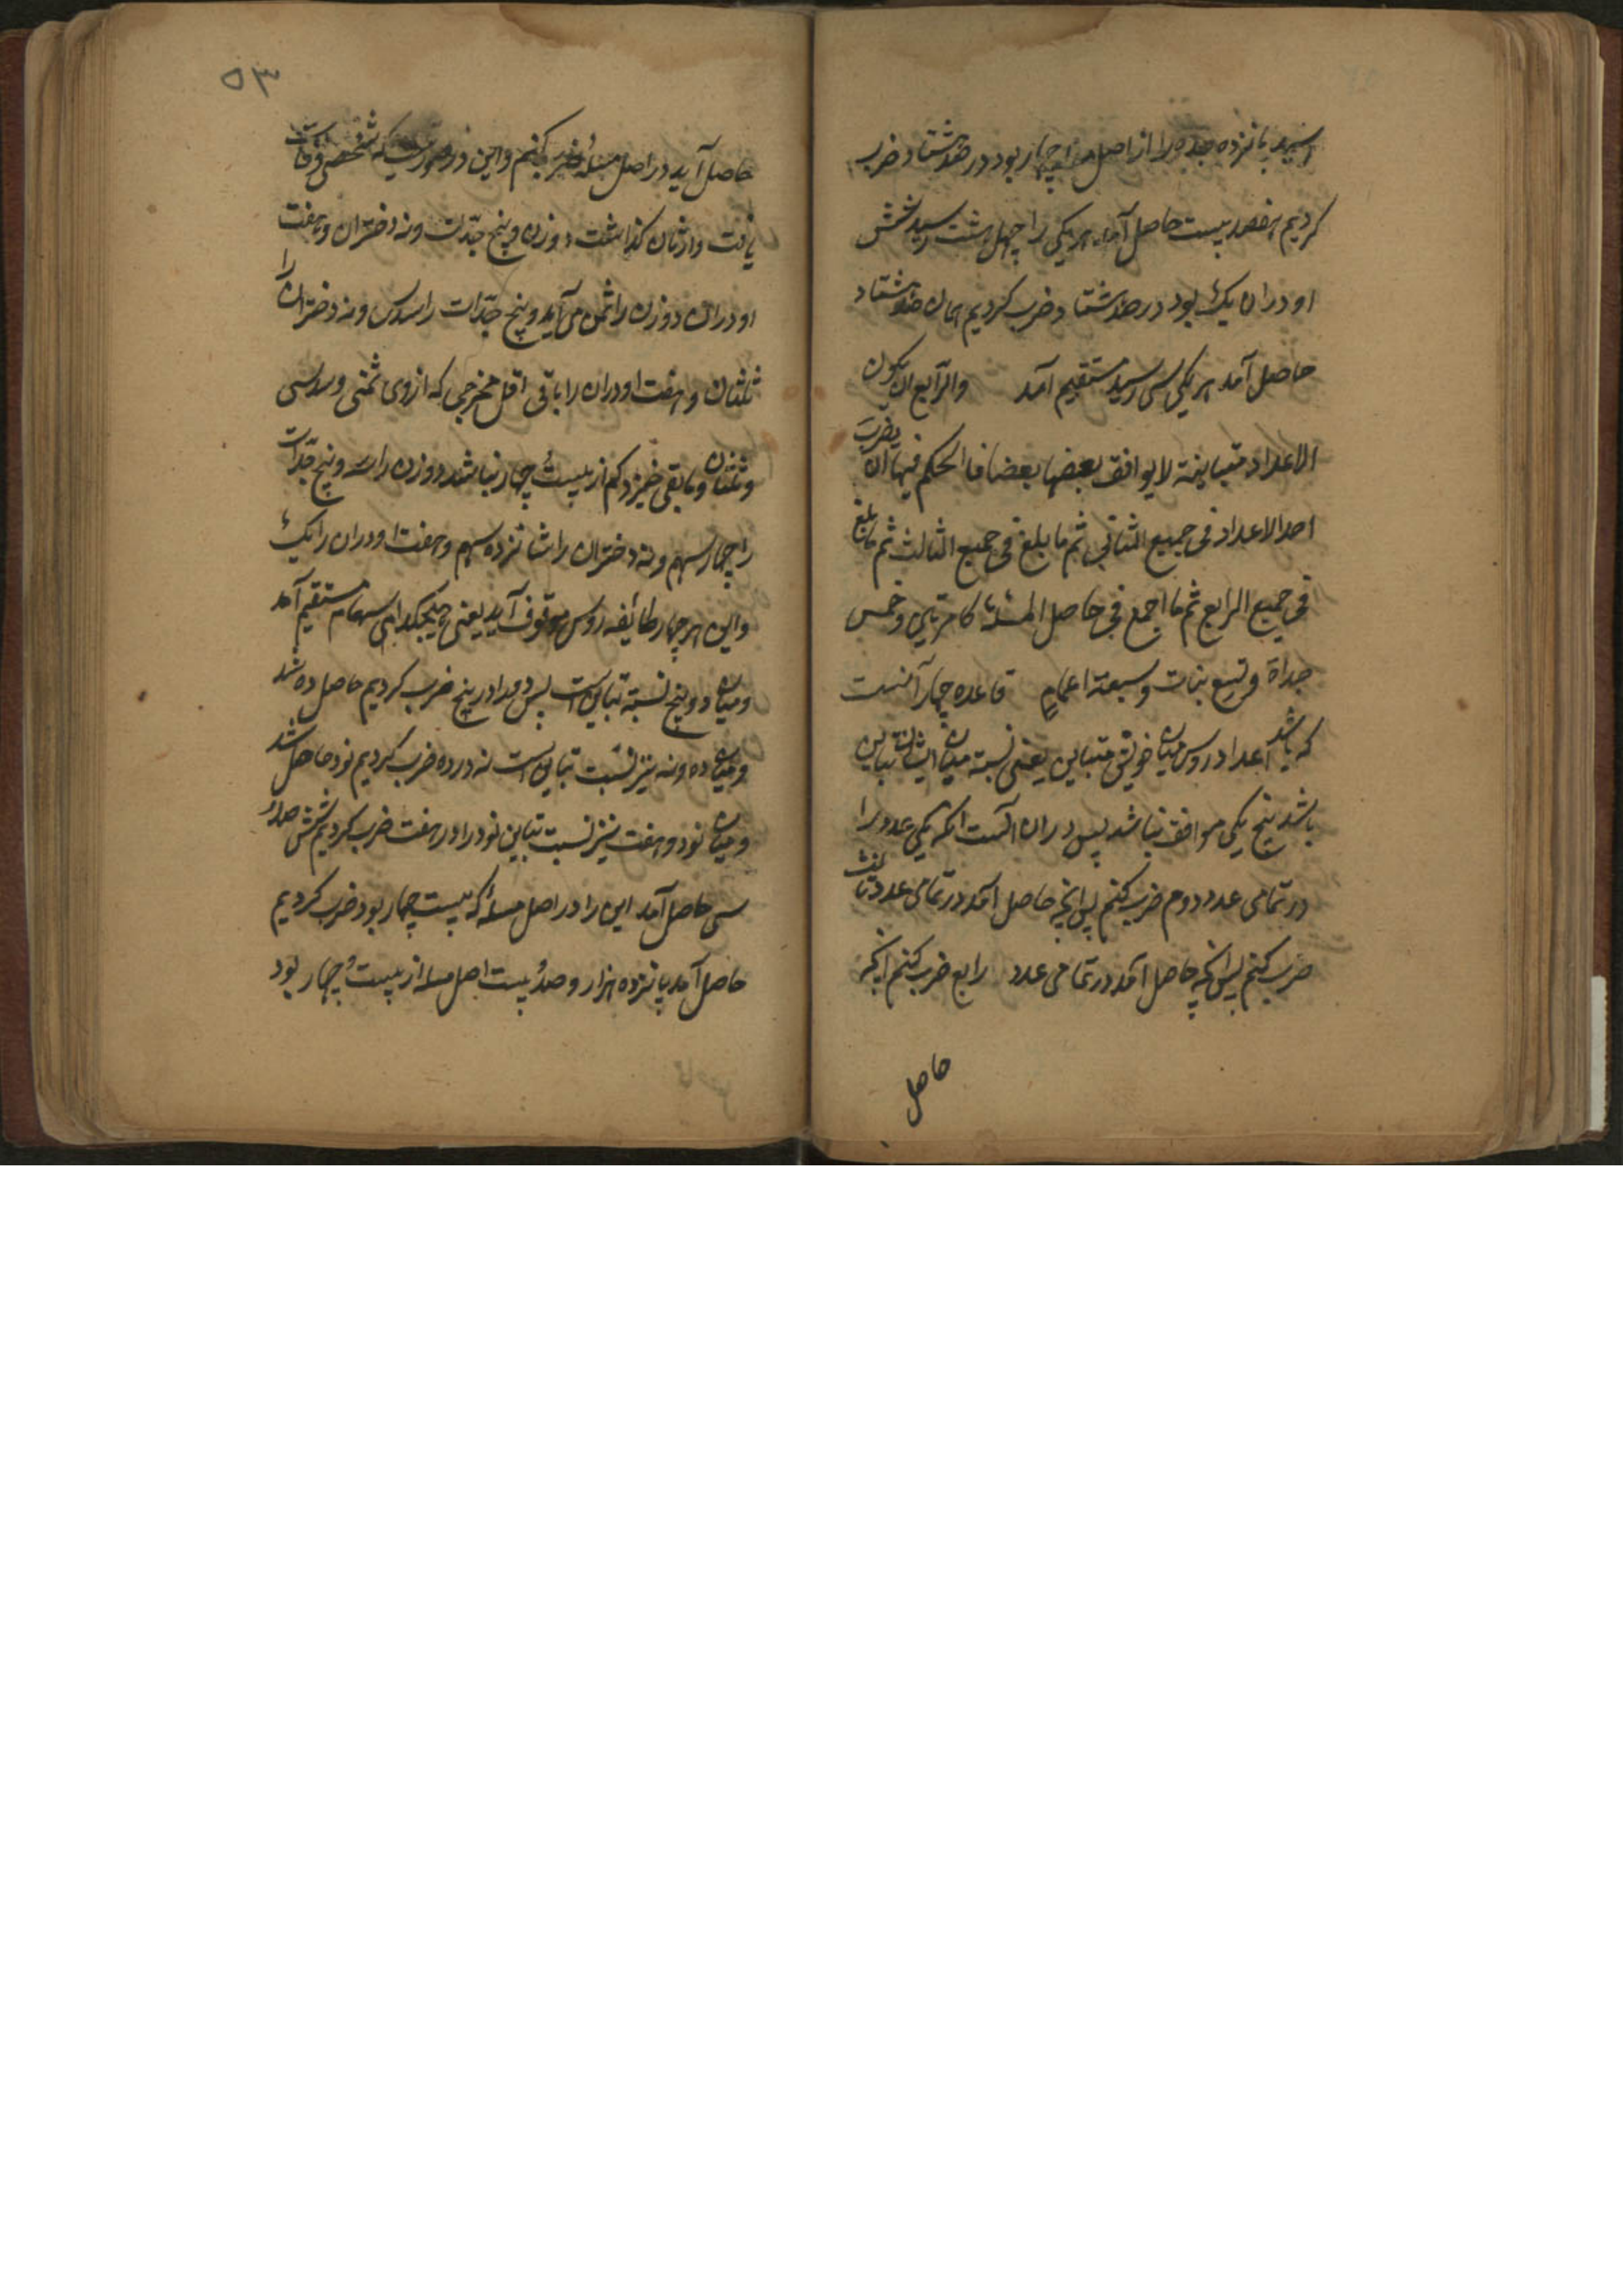 رسید پانزده جده را از اصل مسئله چهار بود در صد هشتاد ضرب
کردیم هفصد بیست حاصل آمد هر یکی را چهل هشت رسید شش
اودران یک بود در صد هشتاد ضرب کردیم همان صد هشتاد
حاصل آمد هر یکی سی رسید مستقیم آمد والرابع ان یکون
الاعداد متباینة لا یوافق بعضها بعضا فالحکم فیها ان یضرب
احد الاعداد فی جمیع الثانی ثم ما بلغ فی جمیع الثالث ثم ما بلغ
فی جمیع الرابع ثم ما اجمع فی حاصل المسئلة کامرتین وخمس
جداة وتسع بنات وسبعة اعمام قاعده چهار آنست
که باشد اعداد روس میان خویش متباین یعنی نسبة میان ایشان تباین
باشد هیچ یکی موافق نباشد پس دران آنست انکه یکی عدد را
در تمامی عدد دوم ضرب کنم پس انچه حاصل آمد در تمامی عدد ثالث
ضرب کنم پس انکه حاصل آمد در تمامی عدد رابع ضرب کنم انچه
حاصل
۵۳
حاصل آید در اصل مسئله ضرب کنم واین در صورتیست که شخصی وفات
یافت وارثان کذاشت دو زن و پنج جدات ونه دختران وهفت
اودران دو زن را ثمن می آید و پنج جدات را سدس ونه دختران را
ثلثان وهفت اودران را باقی اقل مخرجی که از وی ثمنی وسدسی
وثلثان وما بقی خیزد کم از بیست چهار نباشد دو زن را سه و پنج جدات
را چهار سهم ونه دختران را شانزده سهم وهفت اودران را یک
واین هر چهار طائفه روس موقوف آید یعنی هیچکدامی سهام مستقیم آمد
ومیان دو و پنج نسبة تباین است پس دو را در پنج ضرب کردیم حاصل ده شد
ومیان ده ونه نیز نسبت تباین است نه در ده ضرب کردیم نود حاصل شد
ومیان نود وهفت نیز نسبت تباین نود را در هفت ضرب کردیم شش صد
سی حاصل آمد این را در اصل مسئله که بیست چهار بود ضرب کردیم
حاصل آمد پانزده هزار وصد بیست اصل مسئله از بیست چهار بود